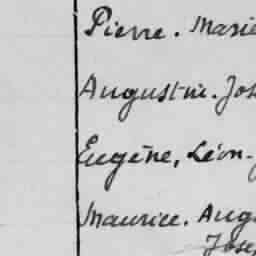 Pierre. Marie
Augustin. Jos
Eugène, Léon.
Maurice. Aug
Jose